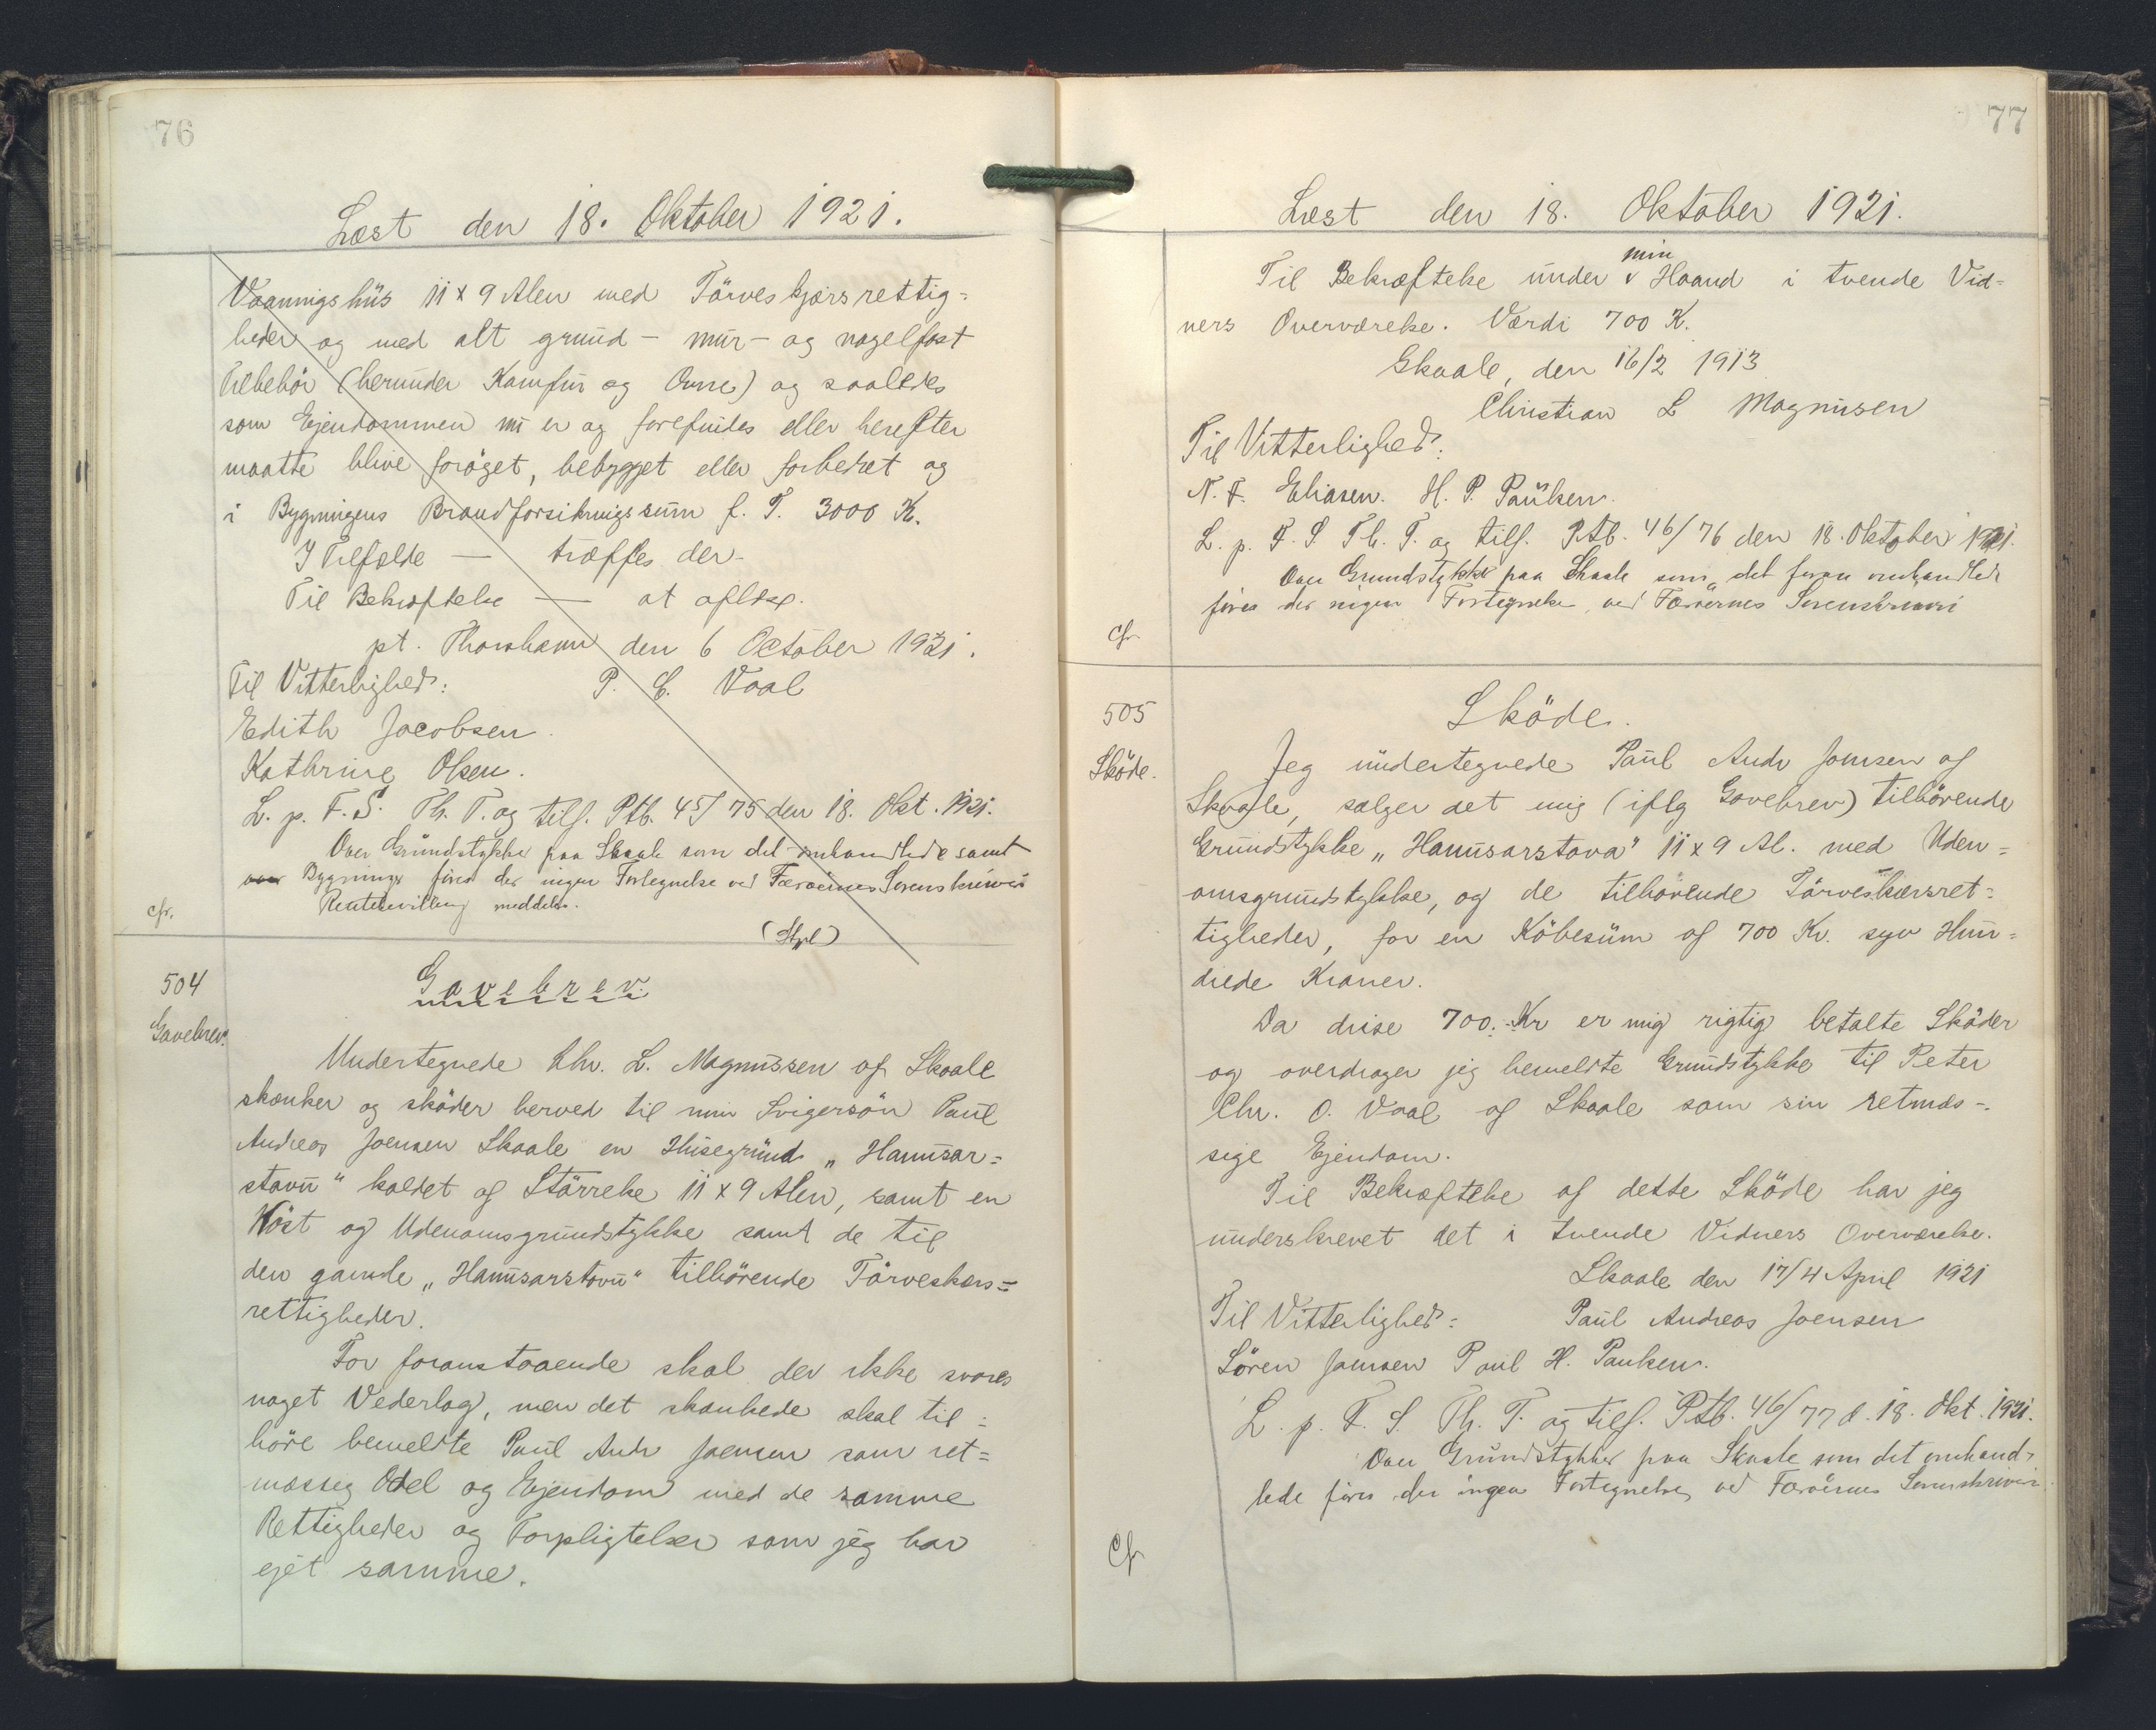 76
Læst den 18. Oktober 1921.
Vaaningshüs 11 x 9 Alen med Törveskjærsrettig=
heder og med alt grund - mur - og nagelfast
Tilbehör (herunder Komfur og Ovne) og saaledes
som Ejendommen nu er og forefindes eller herefter
maatte blive foröget, bebygget eller forbedret og
i Bygningens Brandforsikringssum f. T. 3000 K.
I Tilfælde — træffes der.
Til Bekræftelse — at aflæse.
pt. Thorshavn den 6 October 1921.
Til Vitterlighed: P. C. Vaal
Edith Jacobsen.
Kathrine Olsen.
L. p. F. S. Th. T. og tilf. Ptb. 45/75 den 18. Okt. 1921.
Over Grundstykke paa Skaale som det omhandlede samt
Bygninger föres der ingen Fortegnelse ved Færöernes Sorenskriveri
Rentebevilling meddeles.
cfr.
(Stpl)
504
Gavebrev.
Gavebrev.
Undertegnede Chr. L. Magnussen af Skaale
skænker og sköder herved til min Svigersön Paul
Andreas Joensen Skaale en Husegrund „Hanusar=
stovu“ kaldet af Störrelse 11 x 9 Alen, samt en
Töst og Udenomsgrundstykke samt de til
den gamle „Hanusarstovu“ tilhörende Törveskærs=
rettigheder.
For foranstaaende skal der ikke svares
noget Vederlag, men det skænkede skal til=
höre bemeldte Paul Andr Joensen som ret=
mæssig Odel og Ejendom med de samme
Rettigheder og Forpligtelser som jeg har
ejet samme.
77
Læst den 18. Oktober 1921.
min
Til Bekræftelse under v Haand i tvende Vid=
ners Overværelse. Værdi 700 K.
Skaale, den 16/2 1913
Christian L Magnusen
Til Vitterlighed:
N. F. Eliasen. H. P. Paulsen.
L. p. F. S Th. T. og tilf. Ptb. 46/76 den 18. Oktober 1921.
Over Grundstykker paa Skaale som det foran omhandlede
föres der ingen Fortegnelse ved Færöernes Sorenskriveri
cfr.
505
Sköde.
Sköde.
Jeg undertegnede Paul Andr Joensen af
Skaale, sælger det mig (iflg Gavebrev) tilhörende
Grundstykke „Hanusarstova“ 11 x 9 Al. med Uden=
omsgrundstykke, og de tilhörende Törveskærsret=
tigheder, for en Köbesum af 700 Kr. syv Hun=
drede Kroner.
Da disse 700. Kr er mig rigtig betalte Sköder
og overdrager jeg bemeldte Grundstykke til Peter
Chr. O. Vaal af Skaale som sin retmæs=
sige Ejendom.
Til Bekræftelse af dette Sköde har jeg
underskrevet det i tvende Vidners Overværelse.
Skaale den 17/4 April 1921
Til Vitterlighed: Paul Andreas Joensen
Sören Joensen Paul H. Paulsen.
L. p. F. S. Th. T. og tilf. Ptb. 46/77 d. 18. Okt. 1921.
Over Grundstykker paa Skaale som det omhand=
lede föres der ingen Fortegnelse ved Færöernes Sorenskriveri.
Cfr